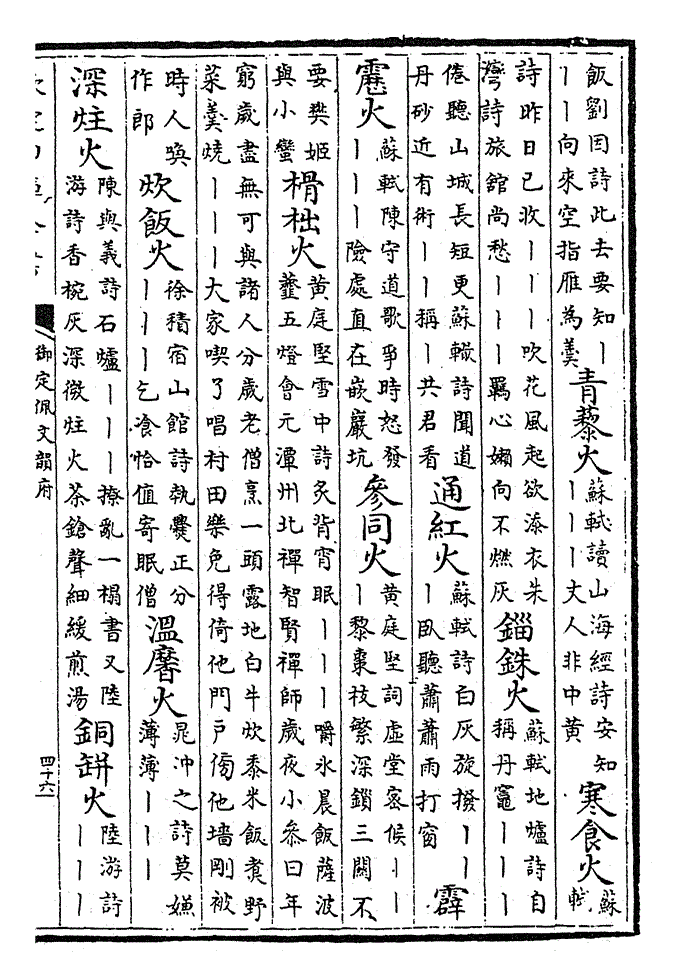 飯劉因詩此去要知丨
丨丨向來空指雁為羹
青藜火
蘇軾讀山海經詩安知
丨丨丨丈人非中黃
寒食火
蘇
軾
詩昨日已收丨丨丨吹花風起欲添衣朱
灣詩旅館尚愁丨丨丨羈心嬾向不燃灰
錙銖火
蘇軾地爐詩自
稱丹竈丨丨丨
倦聽山城長短更蘇轍詩聞道
丹砂近有術丨丨稱丨共君看
通紅火
蘇軾詩白灰旋撥丨丨
丨臥聽蕭蕭雨打窗
霹
靂火
蘇軾陳守道歌爭時怒發
丨丨丨險處直在嵌巖坑
參同火
黃庭堅詞虛堂密候丨丨
丨黎棗枝繁深鎖三關不
要樊姬
與小蠻
榾柮火
黃庭堅雪中詩炙背宵眠丨丨丨嚼冰晨飯薩波
虀五燈會元潭州北禪智賢禪師歲夜小參曰年
窮歲盡無可與諸人分歲老僧烹一頭露地白牛炊黍米飯煮野
菜羹燒丨丨丨大家喫了唱村田樂免得倚他門戶傍他墻剛被
時人喚
作郎
炊飯火
徐積宿山館詩執爨正分
丨丨丨乞飡恰值寄眠僧
溫黁火
晁沖之詩莫嫌
薄薄丨丨丨
深炷火
陳與義詩石爐丨丨丨撩亂一榻書又陸
游詩香椀灰深微炷火茶鎗聲細緩煎湯
銅缾火
陸游詩
丨丨丨
御定佩文韻府
四十六